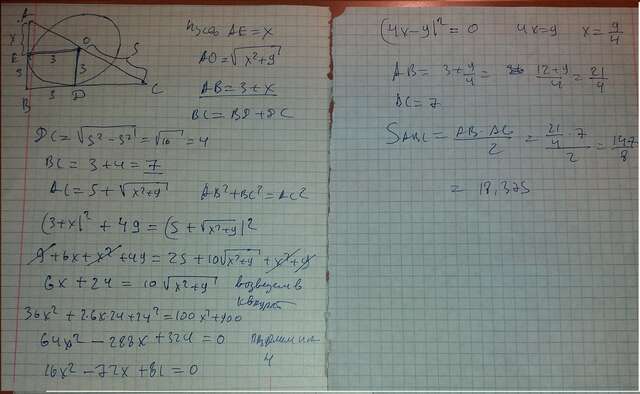 A
X
E
3
O
B
3
3
3
D
5
C
Пусть AE = x
AO = √x²+9
AB = 3 + x
BC = BD + DC
DC = √5²-3² = √16 = 4
BC = 3 + 4 = 7
AC = 5 + √x²+9 AB² + BC² = AC²
(3+x)² + 49 = (5 + √x²+9)²
9 + 6x + x² + 49 = 25 + 10√x²+9 + x² + 9
6x + 24 = 10√x²+9 возведем в квадрат
36x² + 2·6x·24 + 24² = 100x² + 900
64x² - 288x + 324 = 0
4
16x² - 72x + 81 = 0
(4x-9)² = 0 4x = 9 x = 9/4
AB = 3 + 9/4 = 12+9/4 = 21/4
BC = 7
S ABC = AB·BC/2 = 21/4 · 7/2 = 147/8
= 18,375